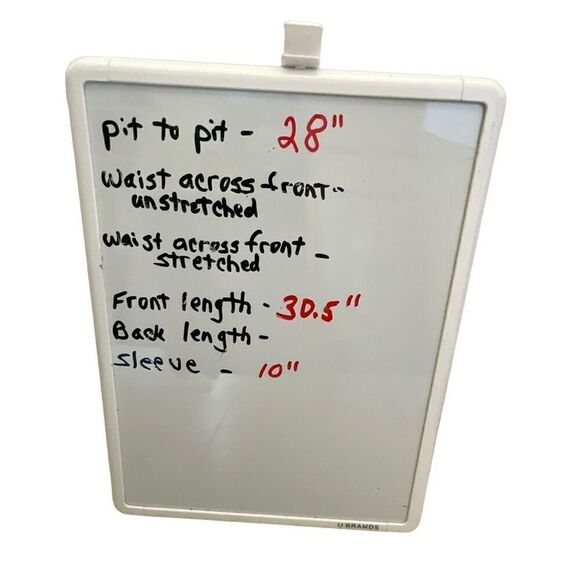 pit to pit - 28"
Waist across front -
unstretched
waist across front -
stretched
Front length - 30.5"
Back length -
sleeve - 10"
U BRANDS